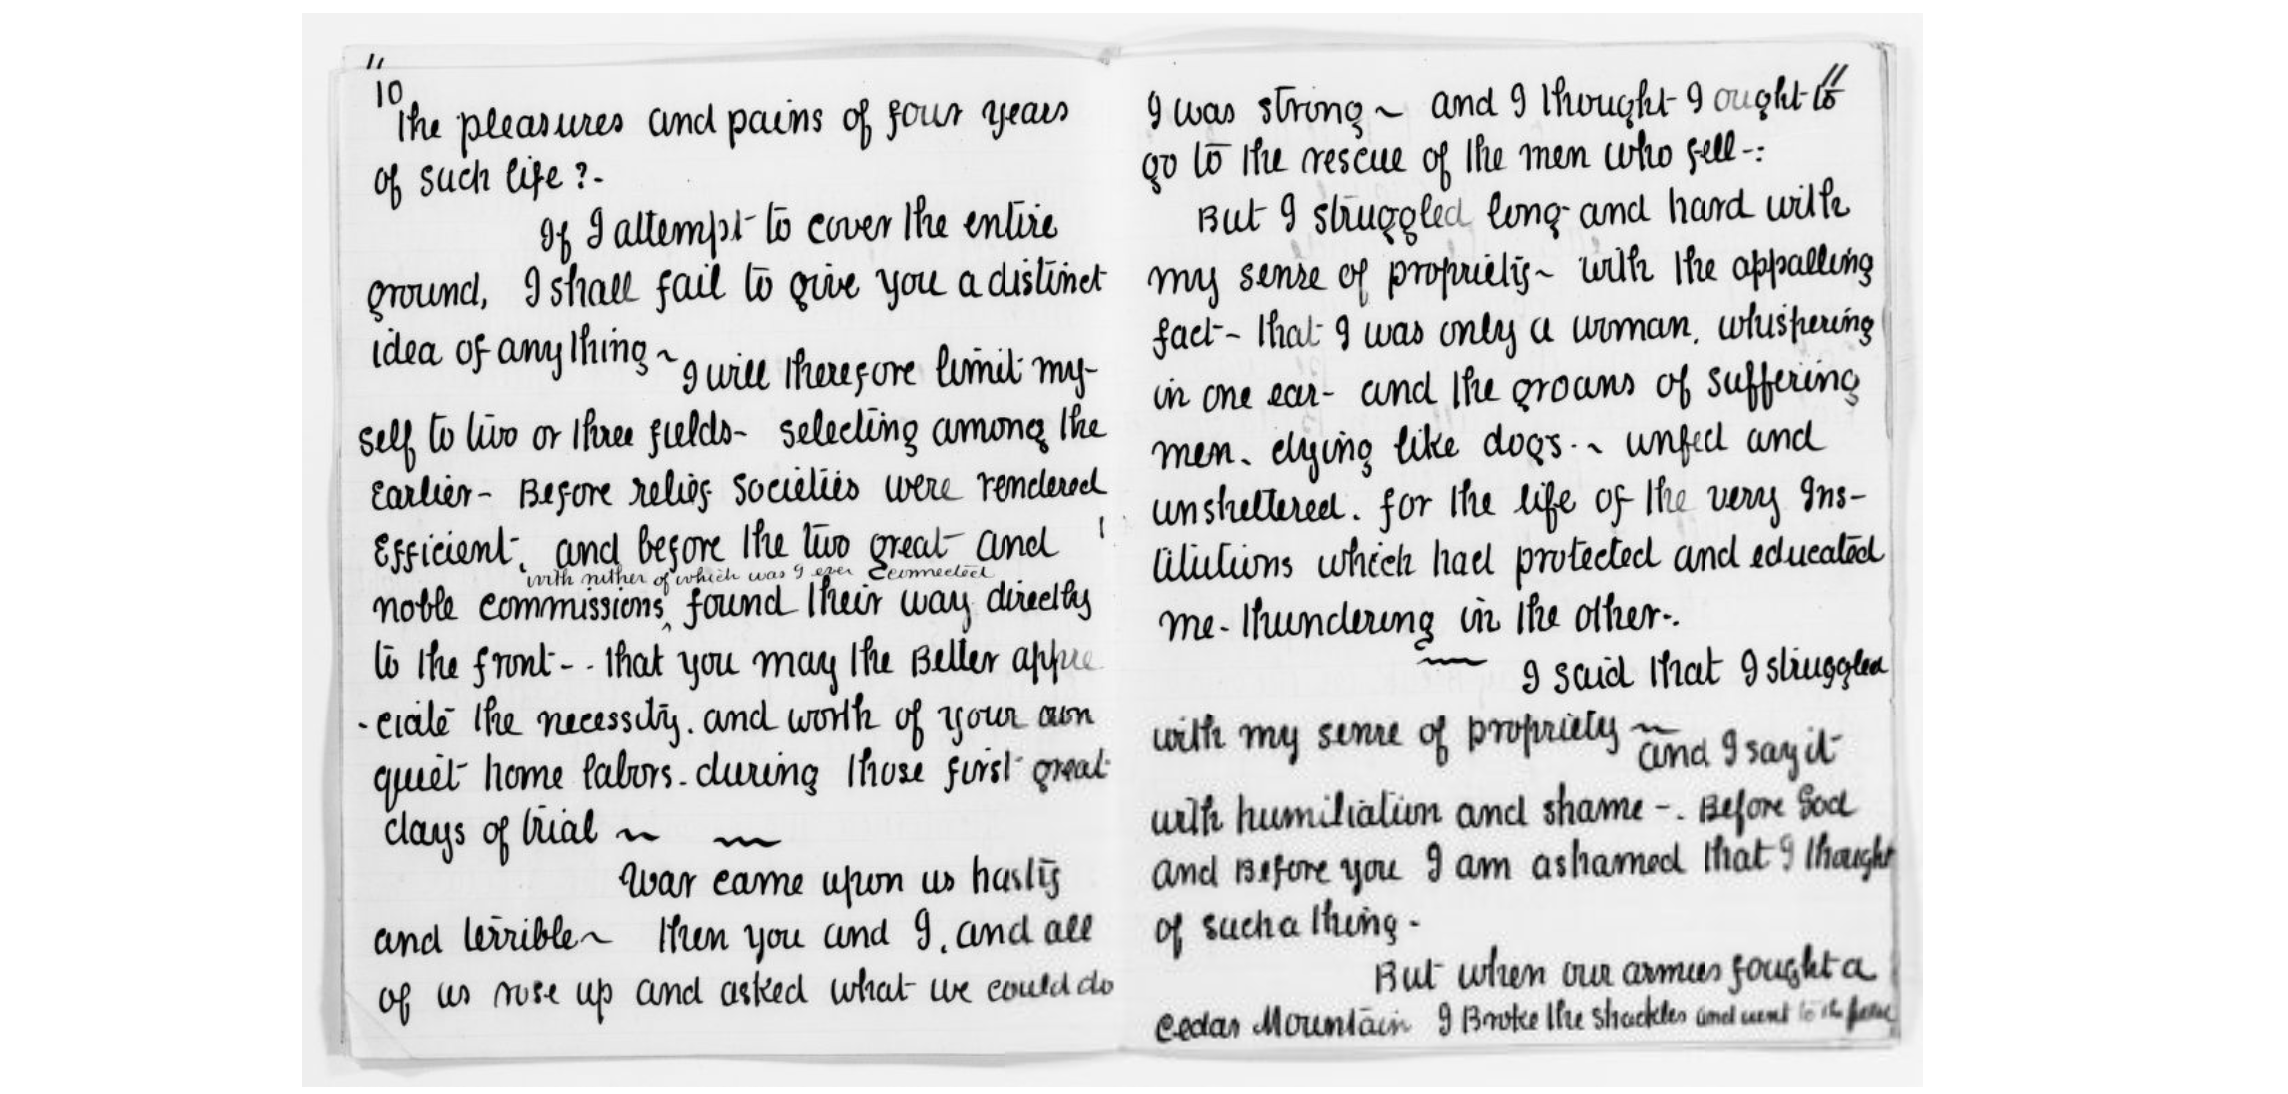 "
10
The pleasures and pains of four years
of such life?-
If I attempt to cover the entire
ground, I shall fail to give you a distinct
idea of anything ~
I will therefore limit my-
self to two or three fields- selecting among the
Earlier- Before relief societies were rendered
Efficient, and before the two great and
with nither of which was I ever connected
noble commissions ^ found their way directly
to the front- - that you may the Better appre
-ciate the necessity. and worth of your own
quiet home labors. during those first great
days of trial ~ ~
War came upon us hasty
and terrible ~ Then you and I, and all
of us rose up and asked what we could do
11
I was strong ~ and I thought I ought to
go to the rescue of the men who fell-:
But I struggled long and hard with
my sense of propriety ~ with the appalling
fact- that I was only a woman, whispering
in one ear- and the groans of suffering
men. dying like dogs - ~ unfed and
unsheltered. for the life of the very Ins-
titutions which had protected and educated
me- thundering in the other-.
~ I said that I struggled
with my sense of propriety ~
and I say it
with humiliation and shame -. Before God
and Before you I am ashamed that I thought
of such a thing -
But when our armies fought a
Cedar Mountain I Broke the shackles and went to the